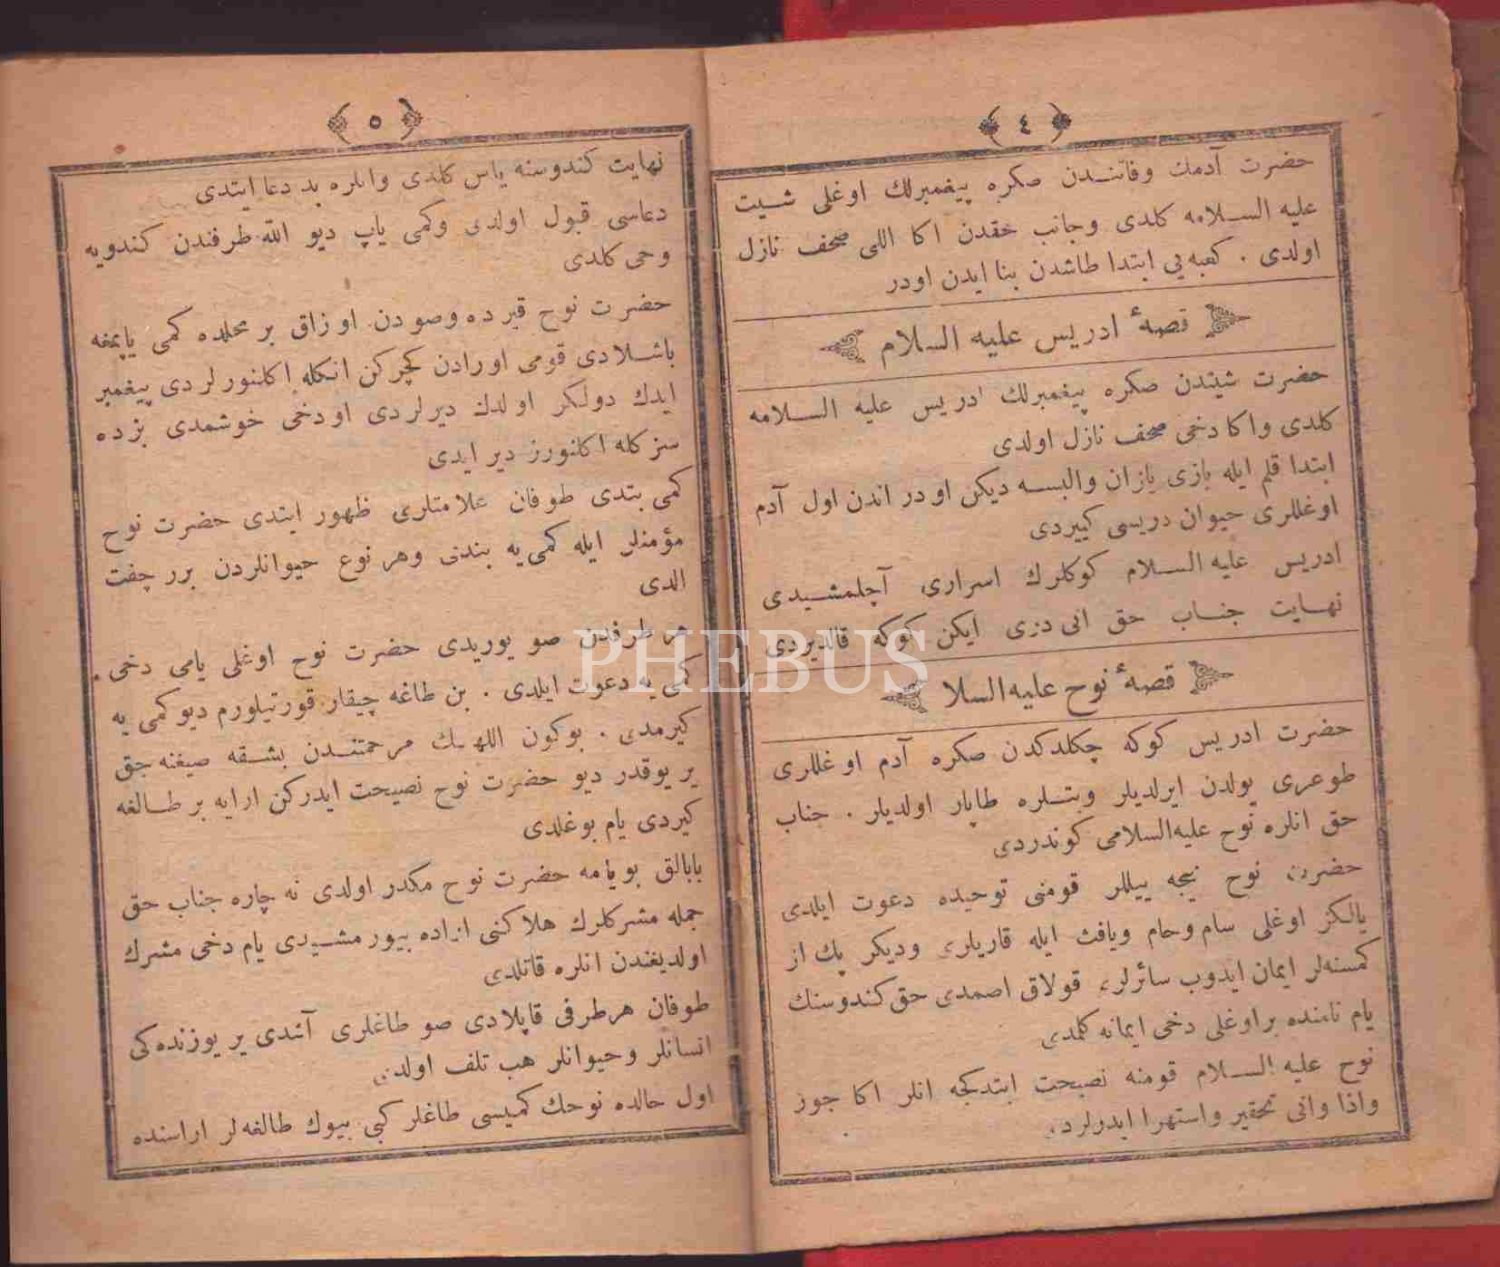 ٤
حضرت آدمك وفاتندن صكره پيغمبرلك اوغلى شيت
عليه السلامه كلدى وجانب حقدن اكا اللى صحف نازل
اولدى . كعبه‌يى ابتدا طاشدن بنا ايدن اودر
قصهٔ ادريس عليه السلام
حضرت شيتدن صكره پيغمبرلك ادريس عليه السلامه
كلدى واكا دخى صحف نازل اولدى
ابتدا قلم ايله يازى يازان والبسه ديكن اودر اندن اول آدم
اوغللرى حيوان دريسى كييردى
ادريس عليه السلام كوكلرك اسرارى آچلمشيدى
نهايت جناب حق انى دزى ايكن كوكه قالديردى
قصهٔ نوح عليه‌السلا
حضرت ادريس كوكه چكلدكدن صكره آدم اوغللرى
طوغرى يولدن ايرلديلر وبتلره طاپار اولديلر . جناب
حق انلره نوح عليه‌السلامى كوندردى
حضرت نوح نيجه ييللر قومنى توحيده دعوت ايلدى
يالكز اوغلى سام وحام ويافث ايله قاريلرى وديكر پك از
كمسنه‌لر ايمان ايدوب سائرلرى قولاق اصمدى حق كندوسنك
يام نامنده براوغلى دخى ايمانه كلمدى
نوح عليه السلام قومنه نصيحت ابتدكجه انلر اكا جوز
واذا وانى تحقير واستهزا ايدرلردى
٥
نهايت كندوسنه ياس كلدى وانلره بد دعا ايتدى
دعاسى قبول اولدى وكمى ياپ ديو الله طرفندن كندويه
وحى كلدى
حضرت نوح قيرده وصودن اوزاق بر محلده كمى ياپمغه
باشلادى قومى اورادن كچركن انكله اكلنورلردى پيغمبر
ايدك دولكر اولدك ديرلردى اودخى خوشمدى بزده
سزكله اكلنورز دير ايدى
كمى بتدى طوفان علامتلرى ظهور ايتدى حضرت نوح
مؤمنلر ايله كمى‌يه بندى وهر نوع حيوانلردن برر چفت
الدى
هر طرفدن صو يوريدى حضرت نوح اوغلى يامى دخى
كمى‌يه دعوت ايلدى . بن طاغه چيقار قورتيلورم ديو كمى يه
كيرمدى . بوكون اللهك مرحمتندن بشقه صيغنه جق
ير يوقدر ديو حضرت نوح نصيحت ايدركن ارايه بر طالغه
كيردى يام بوغلدى
بابالق بو يا مه حضرت نوح مكدر اولدى نه چاره جناب حق
جمله مشركلرك هلاكنى اراده بيورمشيدى يام دخى مشرك
اولديغندن انلره قاتلدى
طوفان هرطرفى قاپلادى صو طاغلرى آشدى ير يوزنده كى
انسانلر وحيوانلر هب تلف اولدى
اول حالده نوحك كميسى طاغلر كبى بيوك طالغه‌لر اراسنده
PHEBUS